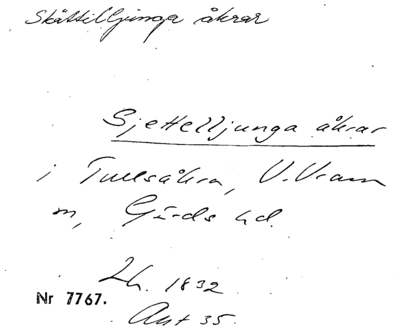 Skättilljunga åkrar
Sjettelljunga åkrar
i Tullsåkra, V. Vram
m, Gärds hd.
Lh. 1832
Nr 7767.
Akt 35.